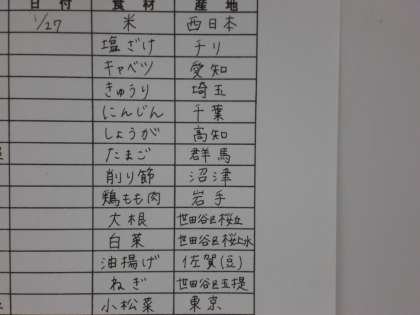 日付 食材 産地
1/27 米 西日本
塩ざけ チリ
キャベツ 愛知
きゅうり 埼玉
にんじん 千葉
しょうが 高知
たまご 群馬
削り節 沼津
鶏もも肉 岩手
大根 世田谷区桜丘
白菜 世田谷区桜上水
油揚げ 佐賀(豆)
ねぎ 世田谷区玉堤
小松菜 東京